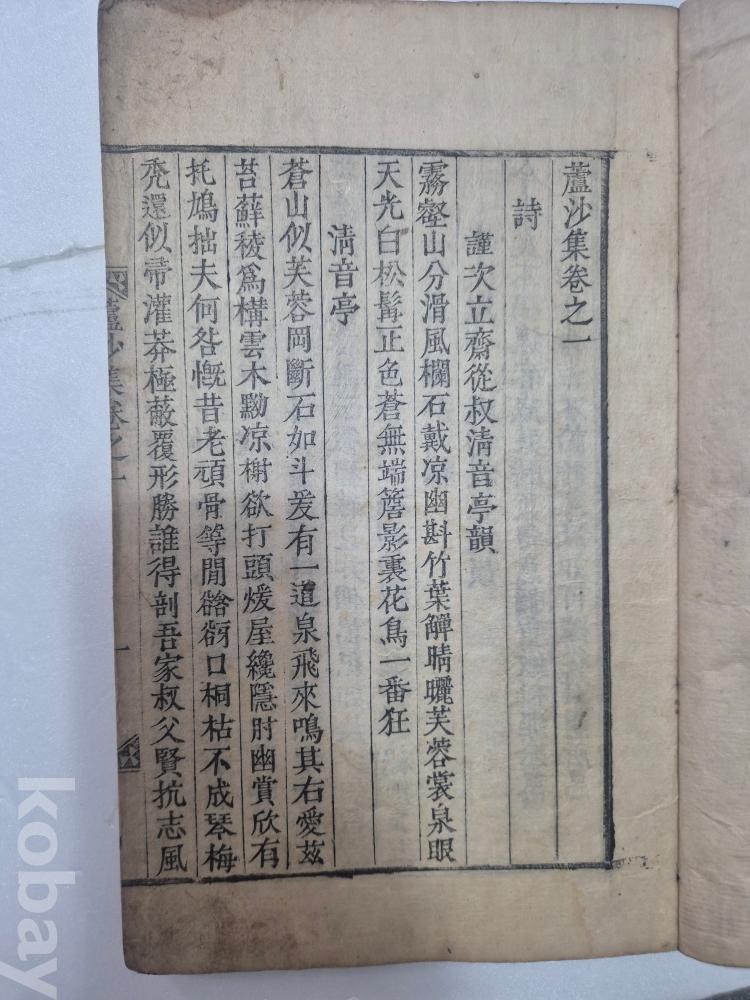 蘆沙集卷之一
詩
謹次立齋從叔淸音亭韻
霧壑山分滑風欄石戴凉幽斟竹葉觶晴曬芙蓉裳泉眼
天光白松髯正色蒼無端簷影裏花鳥一番狂
淸音亭
蒼山似芙蓉岡斷石如斗爰有一道泉飛來鳴其右愛玆
苔蘚稜爲構雲木黝凉榭欲打頭煖屋纔隱肘幽賞欣有
托鳩拙夫何咎慨昔老頑骨等閒谽谺口桐枯不成琴梅
禿還似帚灌莽極蔽覆形勝誰得剖吾家叔父賢抗志風
蘆沙集卷之一
一
kobay